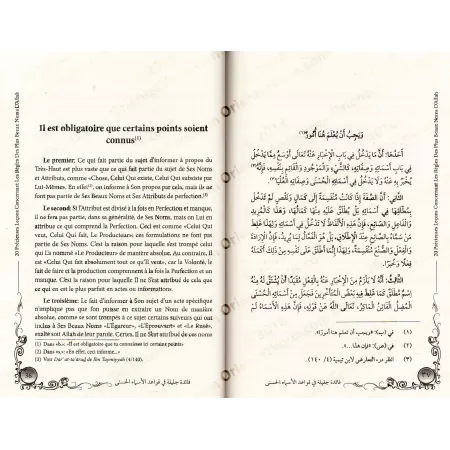 Il est obligatoire que certains points soient
connus(1)
Le premier: Ce qui fait partie du sujet d'informer à propos du
Très-Haut est plus vaste que ce qui fait partie du sujet de Ses Noms
et Attributs, comme «Chose, Celui Qui existe, Celui Qui subsiste par
Lui-Même». En effet(2), on informe à Son propos par cela, mais ils ne
font pas partie de Ses Beaux Noms et Ses Attributs de perfection.(3)
Le second: Si l'Attribut est divisé à la fois en Perfection et manque,
il ne fera pas partie, dans sa généralité, de Ses Noms, mais on Lui en
attribue ce qui comprend la Perfection. Ceci est comme «Celui Qui
veut, Celui Qui fait, Le Producteur»; ces formulations ne font pas
partie de Ses Noms. C'est la raison pour laquelle s'est trompé celui
qui L'a nommé «Le Producteur» de manière absolue. Au contraire, Il
est «Celui Qui fait absolument tout ce qu'Il veut», car la Volonté, le
fait de faire et la production comprennent à la fois la Perfection et un
manque. C'est la raison pour laquelle Il ne S'est attribué de cela que
ce qui est le plus parfait en actes ou informations.
Le troisième: Le fait d'informer à Son sujet d'un acte spécifique
n'implique pas que l'on puisse en extraire un Nom de manière
absolue, comme se sont trompés à ce sujet certains suivants qui ont
inclus à Ses Beaux Noms «L'Égareur», «L'Éprouvant» et «Le Rusé»,
exalté soit Allah de leur parole. Certes, Il ne S'est attribué de ces noms
(1) Dans «b»: «Il est obligatoire que tu connaisses ici certains points»
(2) Dans «s»: «En effet, ceci informe...»
(3) Voir Dar' at-ta'ârud de Ibn Taymiyyah (4/140).
36
فائدة جليلة في قواعد الأسماء الحسنى
20 Précieuses Leçons Concernant Les Règles Des Plus Beaux Noms D'Allah
وَيَجِبُ أَنْ يُعْلَمَ هُنَا أُمُورٌ(١):
أَحَدُهَا: أَنَّ مَا يَدْخُلُ فِي بَابِ الْإِخْبَارِ عَنْهُ تَعَالَى أَوْسَعُ مِمَّا يَدْخُلُ
فِي بَابِ أَسْمَائِهِ وَصِفَاتِهِ، كَالشَّيْءِ وَالْمَوْجُودِ وَالْقَائِمِ بِنَفْسِهِ، فَإِنَّهُ(٢)
يُخْبَرُ بِهِ عَنْهُ وَلَا يَدْخُلُ فِي أَسْمَائِهِ الْحُسْنَى وَصِفَاتِهِ الْعُلْيَا(٣).
الثَّانِي: أَنَّ الصِّفَةَ إِذَا كَانَتْ مُنْقَسِمَةً إِلَى كَمَالٍ وَنَقْصٍ لَمْ تَدْخُلْ
بِمُطْلَقِهَا فِي أَسْمَائِهِ بَلْ يُطْلَقُ عَلَيْهِ مِنْهَا كَمَالُهَا، وَهَذَا كَالْمُرِيدِ
وَالْفَاعِلِ وَالصَّانِعِ، فَإِنَّ هَذِهِ الْأَلْفَاظَ لَا تَدْخُلُ فِي أَسْمَائِهِ، وَلِهَذَا
غَلِطَ مَنْ سَمَّاهُ بِالصَّانِعِ عِنْدَ الْإِطْلَاقِ، بَلْ هُوَ الْفَعَّالُ لِمَا يُرِيدُ، فَإِنَّ الْإِرَادَةَ
وَالْفِعْلَ وَالصُّنْعَ مُنْقَسِمَةٌ، وَلِهَذَا إِنَّمَا أَطْلَقَ عَلَى نَفْسِهِ مِنْ ذَلِكَ أَكْمَلَهُ
فِعْلًا وَخَبَرًا.
الثَّالِثُ: أَنَّهُ لَا يَلْزَمُ مِنَ الْإِخْبَارِ عَنْهُ بِالْفِعْلِ مُقَيَّدًا أَنْ يُشْتَقَّ لَهُ مِنْهُ
اسْمٌ مُطْلَقٌ كَمَا غَلِطَ فِيهِ بَعْضُ الْمُتَأَخِّرِينَ فَجَعَلَ مِنْ أَسْمَائِهِ الْحُسْنَى
الْمُضِلَّ الْفَاتِنَ الْمَاكِرَ، تَعَالَى اللهُ عَنْ قَوْلِهِ، فَإِنَّ هَذِهِ الْأَسْمَاءَ لَمْ
(١) في (ب): «ويجب أن تعلم هنا أمورًا».
(٢) في (ص): «فإن هذا...».
(٣) انظر درء التعارض لابن تيمية (٤/ ١٤٠).
فائدة جليلة في قواعد الأسماء الحسنى
٣٧
20 Précieuses Leçons Concernant Les Règles Des Plus Beaux Noms D'Allah